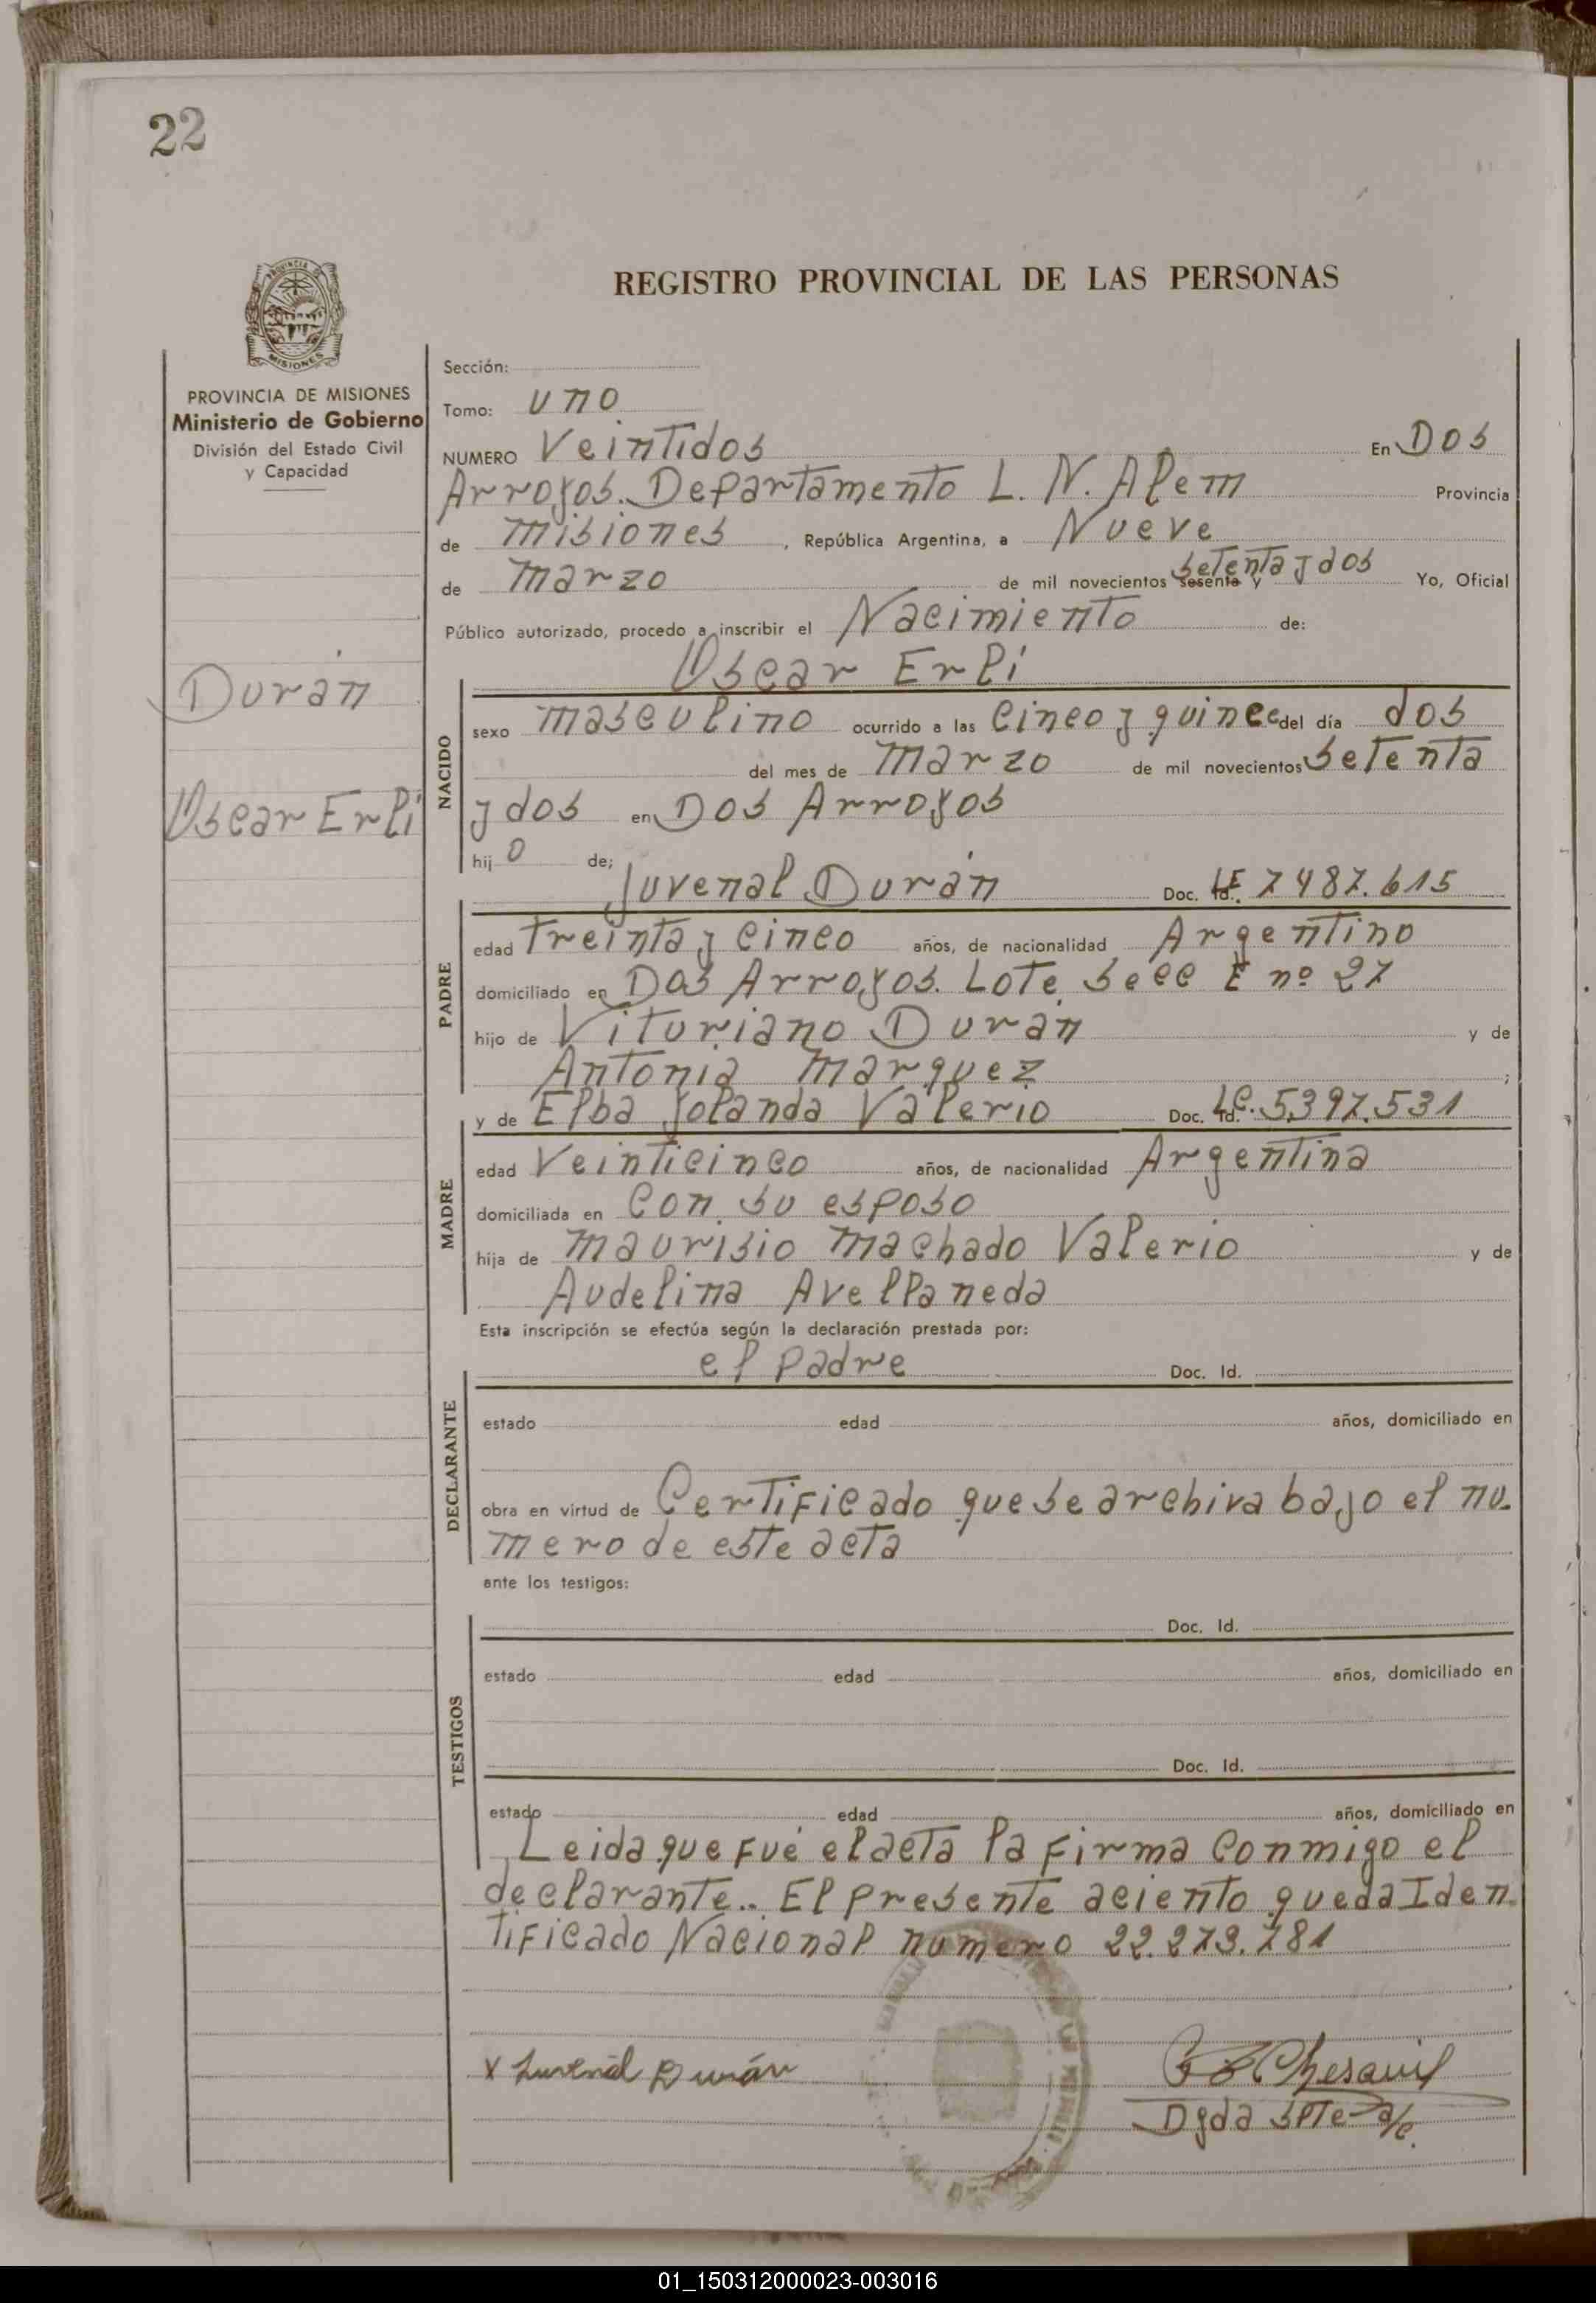 22
REGISTRO PROVINCIAL DE LAS PERSONAS
PROVINCIA DE MISIONES
Ministerio de Gobierno
División del Estado Civil
y Capacidad
Durán
Oscar Erli
Sección:
Tomo: uno
NUMERO Veintidos En Dos
Arroyos. Departamento L. N. Alem Provincia
de misiones, República Argentina, a Nueve
de marzo de mil novecientos sesenta y setenta y dos Yo, Oficial
Público autorizado, procedo a inscribir el Nacimiento de:
Oscar Erli
NACIDO
sexo masculino ocurrido a las Cinco y quince del día dos
del mes de marzo de mil novecientos setenta
y dos en Dos Arroyos
hij o de;
Juvenal Durán Doc. Id. LE. 7487.615
PADRE
edad treinta y cinco años, de nacionalidad Argentino
domiciliado en Dos Arroyos. Lote Secc E nº 27
hijo de Vituriano Durán y de
Antonia marquez ;
y de Elba Yolanda Valerio Doc. Id. LC. 5.397.531
MADRE
edad Veinticinco años, de nacionalidad Argentina
domiciliada en Con su esposo
hija de maurisio machado Valerio y de
Audelina Avellaneda
Esta inscripción se efectúa según la declaración prestada por:
el padre Doc. Id.
DECLARANTE
estado edad años, domiciliado en
obra en virtud de Certificado que se archiva bajo el nu-
mero de este acta
ante los testigos:
Doc. Id.
TESTIGOS
estado edad años, domiciliado en
Doc. Id.
estado edad años, domiciliado en
Leida que fué el acta la firma Conmigo el
declarante.. El presente aciento queda Iden
tificado Nacional numero 22.273.781
x Juvenal Durán
Dgda spte a/c.
MISIONES
01_150312000023-003016